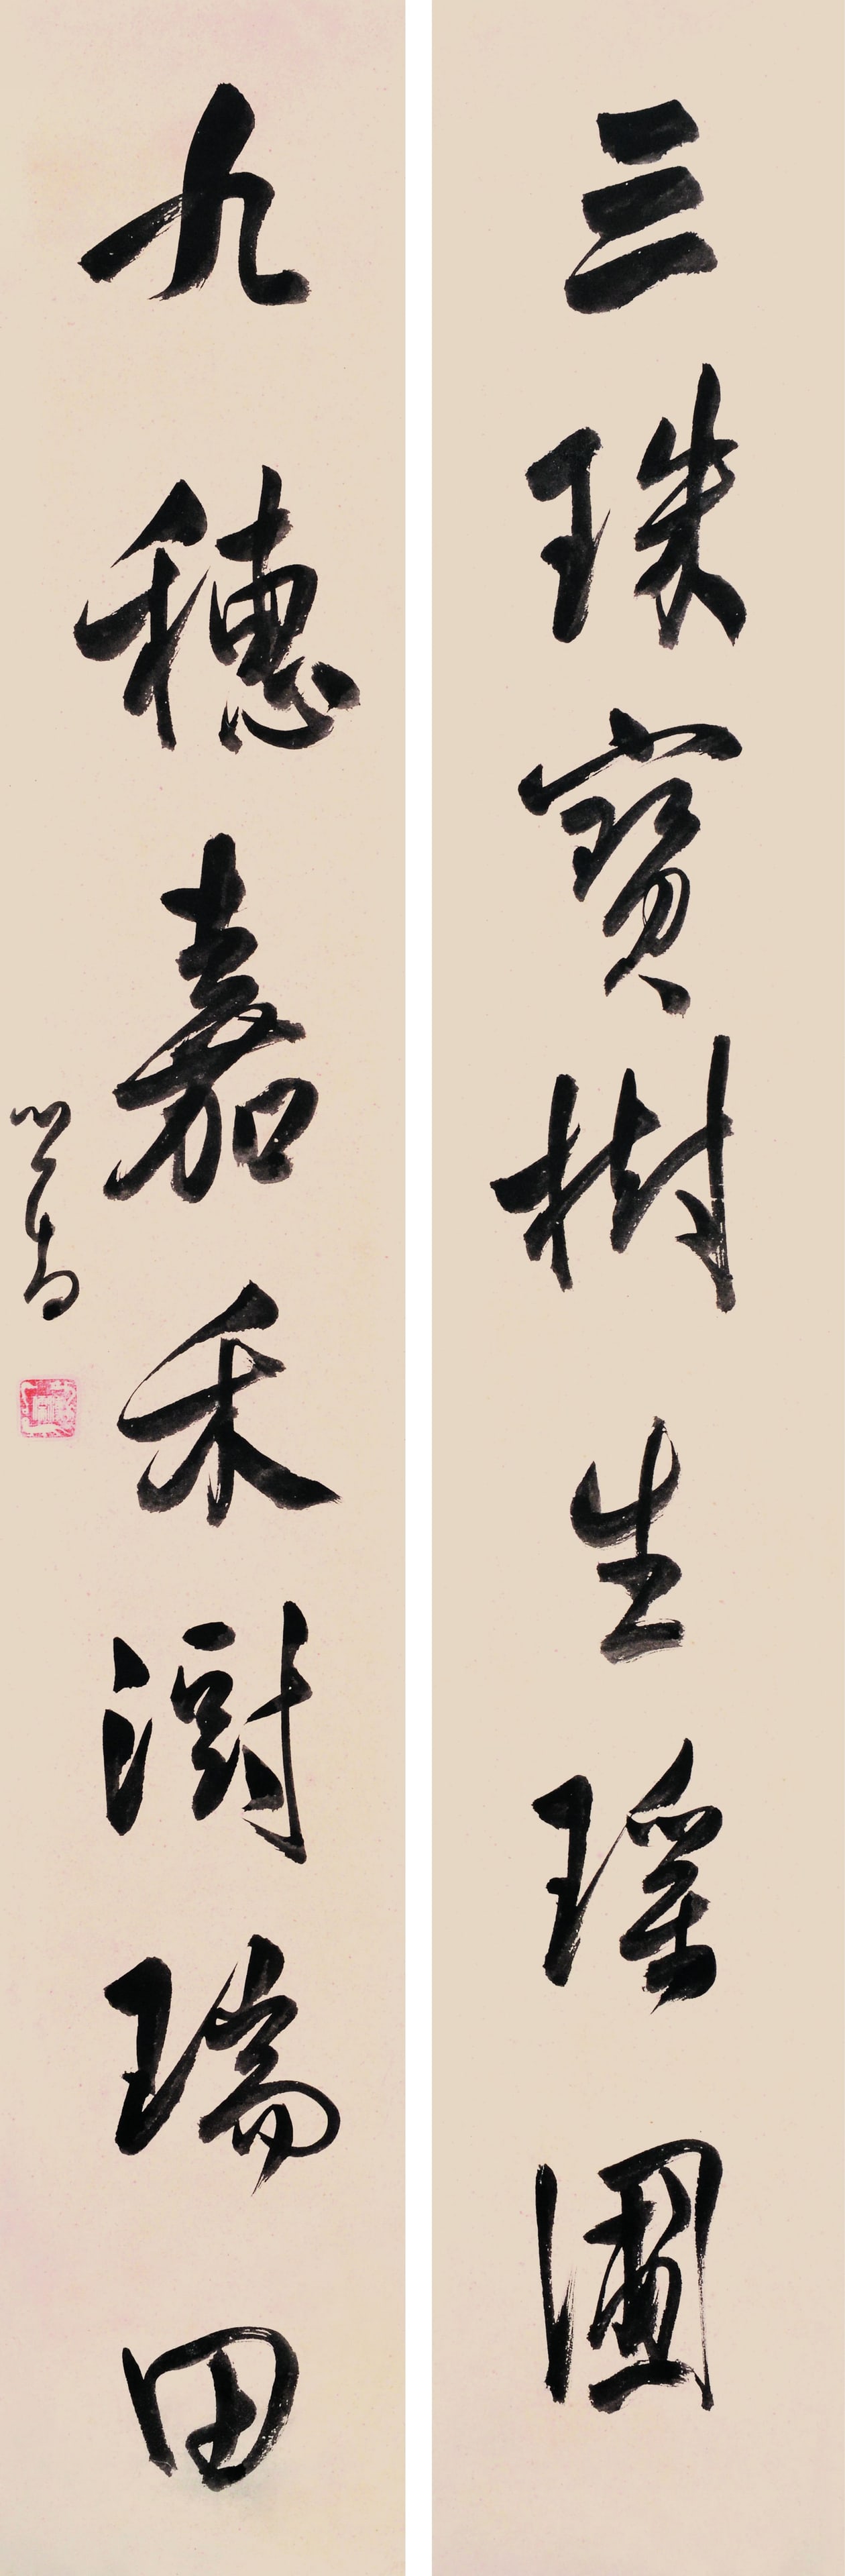 三珠寶樹生瑤圃
九穗嘉禾澍瑞田
心畬